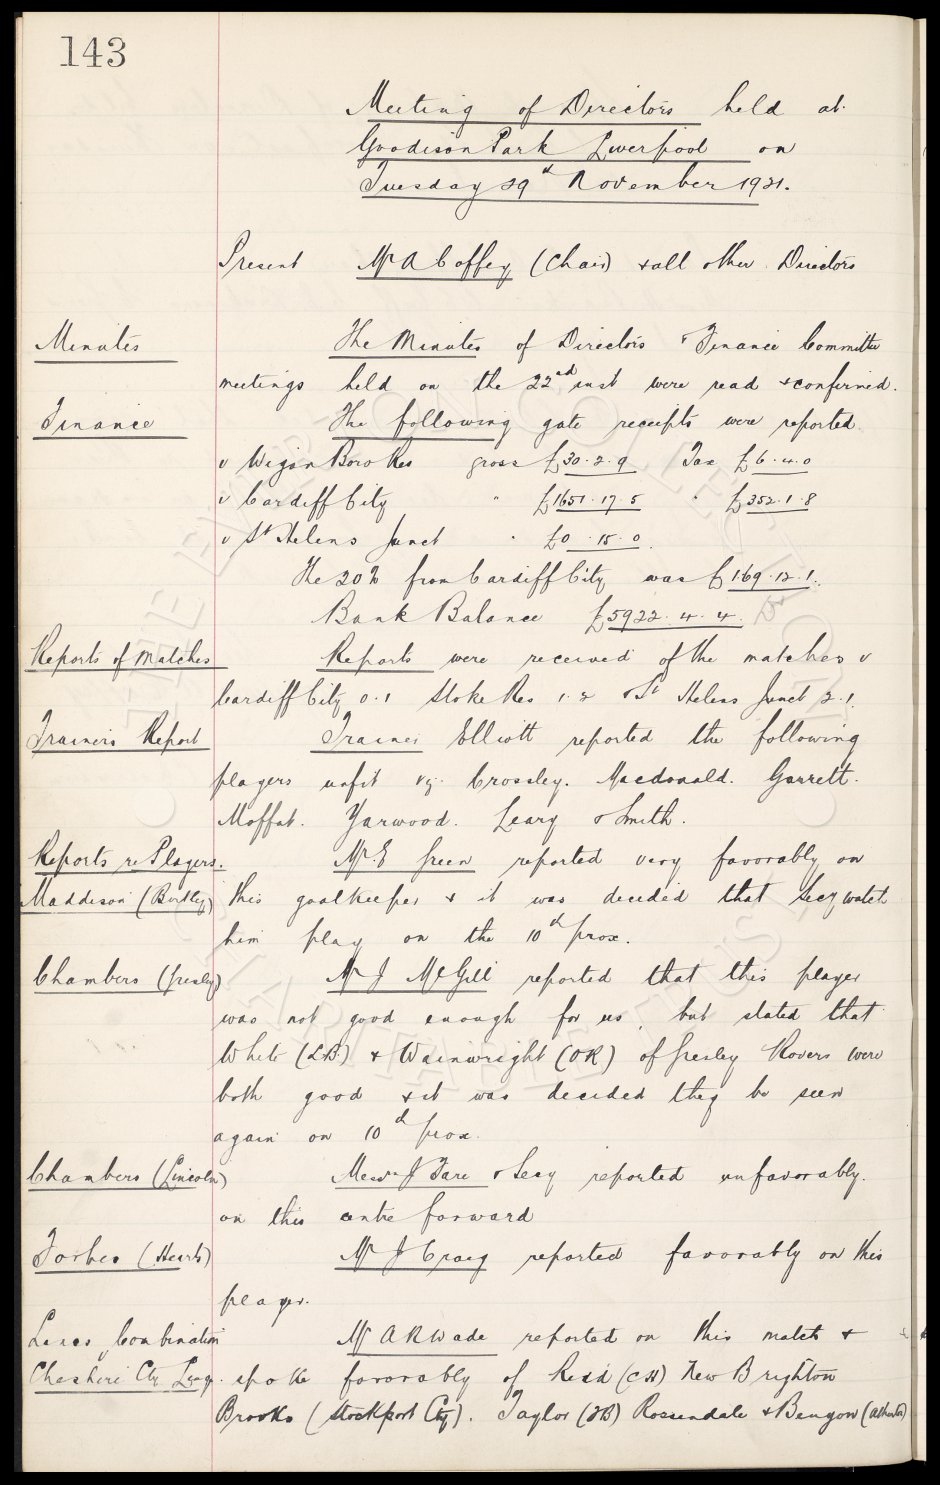 143
Meeting of Directors held at
Goodison Park Liverpool on
Tuesday 29th November 1921.
Present Mr A Coffey (Chair) & all other Directors
Minutes The Minutes of Directors & Finance Committee
meetings held on the 22nd inst were read & confirmed.
Finance The following gate receipts were reported
v Wigan Boro Res gross £30.2.9 Tax £6.4.0
v Cardiff City " £1651.17.5 " £352.1.8
v St Helens Junct " £0.15.0.
The 20% from Cardiff City was £169.12.1.
Bank Balance £5922.4.4.
Reports of Matches Reports were received of the matches v
Cardiff City 0.1 Stoke Res 1.2 & St Helens Junct 2.1.
Trainers Report Trainer Elliott reported the following
players unfit viz. Crossley. Macdonald. Garrett.
Moffat. Yarwood. Leary & Smith.
Reports re Players. Mr E Green reported very favorably on
Maddison (Birtley) this goalkeeper & it was decided that Secy watch
him play on the 10th prox.
Chambers (Gresley) Mr J McGill reported that this player
was not good enough for us, but stated that
White (LB) & Wainwright (OR) of Gresley Rovers were
both good & it was decided they be seen
again on 10th prox.
Chambers (Lincoln) Messrs J Fare & Secy reported unfavorably.
on this centre forward
Forbes (Hearts) Mr J Craig reported favorably on this
player.
Lancs Combination Mr A R Wade reported on this match &
Cheshire Cty Leag. spoke favorably of Reid (CH) New Brighton
Brooks (Stockport Cty). Taylor (LB) Rossendale & Benyon (Atherton)